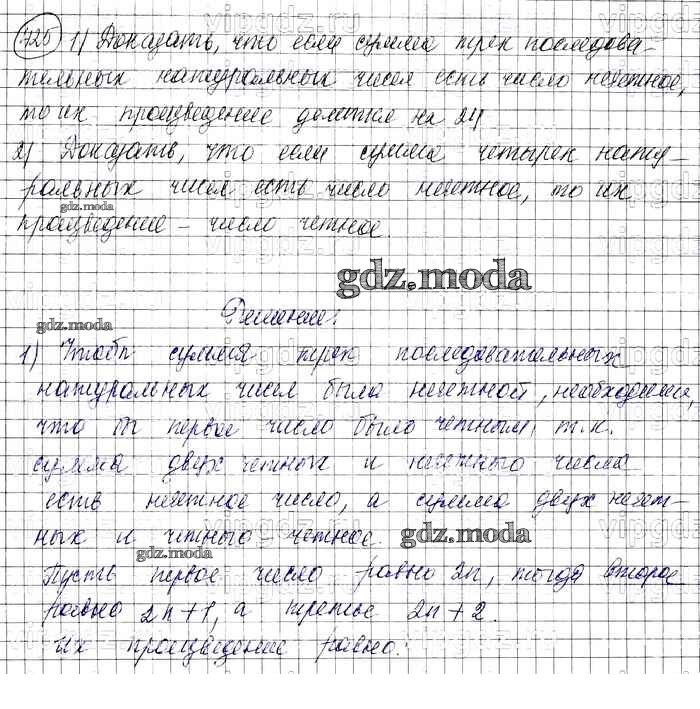 vipgdz.ru
725 1) Доказать, что если сумма трех последова-
тельных натуральных чисел есть число нечетное,
то их произведение делится на 24
2) Доказать, что если сумма четырех нату-
ральных чисел есть число нечетное, то их
gdz.moda
произведение – число четное.
gdz.moda
Решение:
gdz.moda
1) Чтобы сумма трех последовательных
натуральных чисел была нечетной, необходимо,
что бы первое число было четным, т.к.
сумма двух четных и нечетного числа
есть нечетное число, а сумма двух нечет-
ных и четного четное.
gdz.moda
gdz.moda
Пусть первое число равно 2n, тогда второе
равно 2n+1, а третье 2n+2.
их произведение равно: